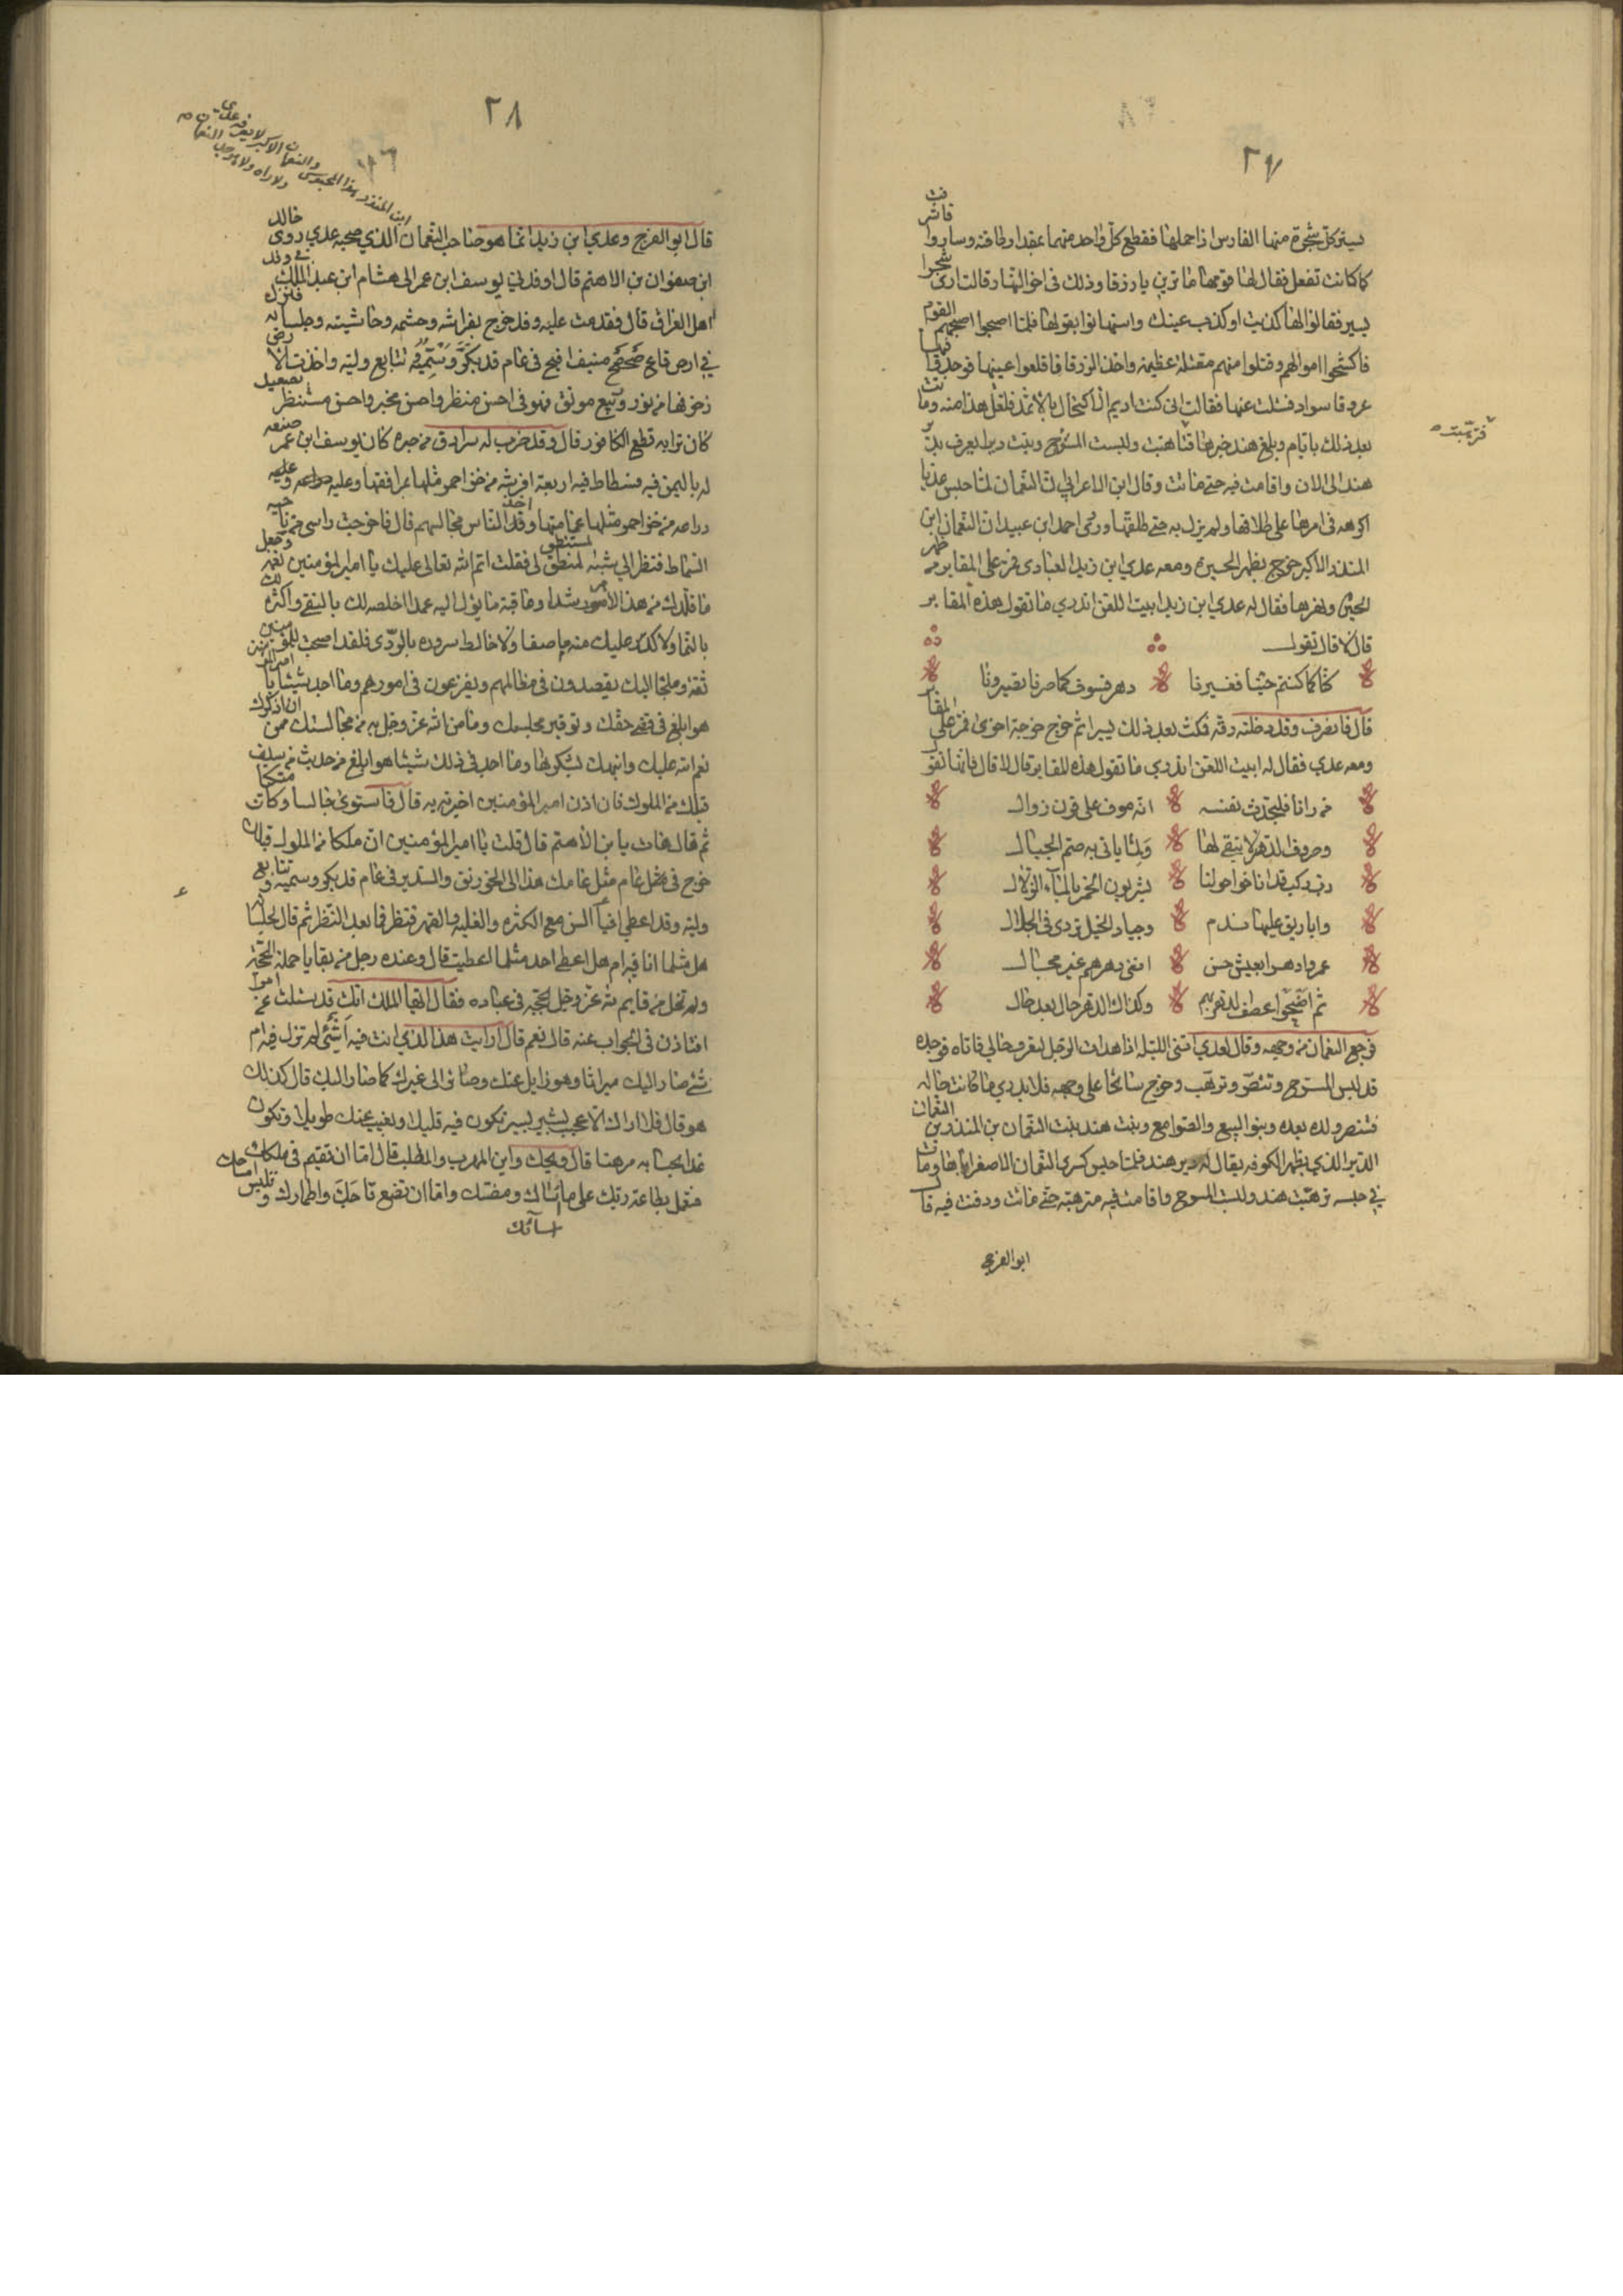 ٢٧
يستر كل شجرة منها الفارس اذا حملها فقطع كل واحد منهما بمقدار طاقته وساروا
كما كانت تفعل فقال لها قومها ما ترين يا زرقا وذلك في اخر النهار قالت ارى شجرا
يسير فقالوا لها كذبت او كذب عينك واستهانوا بقولها فلما اصبحوا اصبحهم القوم
فاكتسحوا اموالهم وقتلوا منهم مقتلة عظيمة واخذ الزرقا فاقلعوا عينيها فوجد فيها
عروقا سوادا فسئلت عنها فقالت اني كنت اديم الاكتحال بالاثمد فلعل هذا منه وماتت
بعد ذلك بايام وبلغ هند خبرها فترهبت ولبست المسوح وبنت ديرا يعرف بدير
هند الى الان واقامت فيه حتى ماتت وقال ابن الاعرابي ان النعمان لما حبس عديا
اكرهه في امرها على طلاقها ولم يزل به حتى طلقها وروى احمد ابن عبيد ان النعمان ابن
المنذر الاكبر خرج بظهر الحيرة ومعه عدي ابن زيد العبادي فمر على المقابر من ظهر
الحيرة ونهرها فقال له عدي ابن زيد ابيت اللعن اتدري ما تقول هذه المقابر
قال لا قال تقول
كنا كما كنتم حينا فغيرنا دهر فسوف كما صرنا تصيرونا
قال فانصرف وقد دخلته رقة فمكث بعد ذلك يسيرا ثم خرج خرجة اخرى فمر على المقابر
ومعه عدي فقال له ابيت اللعن اتدري ما تقول هذه المقابر قال لا قال فانها تقول
من رانا فليحدث نفسه انه موف على قرن زوال
وصروف الدهر لا تبقي لها ولما ياتي به صم الجبال
رب ركب قد اناخوا حولنا يشربون الخمر بالماء الزلال
واباريق عليها فدم وجياد الخيل تردى في الجلال
عمروا دهرا بعيش حسن امني دهرهم غير عجال
ثم اضحوا عصف الدهر بهم وكذاك الدهر حال بعد حال
فرجع النعمان من وجهه وقال لعدي ائتني الليلة اذا هدات الرجل لتعرف حالي فاتاه فوجده
قد لبس المسوح وتنصر وترهب وخرج سائحا على وجهه فلا يدري ما كانت حاله
فتنصر ولده بعده وبنوا البيع والصوامع وبنت هند بنت النعمان بن المنذر بن النعمان
الدير الذي بظهر الكوفه يقال له دير هند فلما حبس كسرى النعمان الاصغر اباها ومات
في حبسه ترهبت هند ولبست المسوح واقامت فيه مترهبة حتى ماتت ودفنت فيه قال
ابو الفرج
فترهبت
٢٨
ابن المنذر هذا المحبوس والنعمان الاكبر لا يعرفه عدي
ولا راه ولا هو جد النعمان
قال ابو الفرج وعدي ابن زيد انما هو صاحب النعمان الذي صحبه عدي روى خالد
ابن صفوان بن الاهتم قال اوفدني يوسف ابن عمر الى هشام ابن عبد الملك في وفد
اهل العراق قال فقدمت عليه وقد خرج بفراشه وحشمه وحاشيته وجلسائه فنزل
في ارض قاع صحصح منيف افيح في عام قد بكر وسميه وتتابع وليه واخذت الارض
زخرفها من نور ربيع مونق فهو في احسن منظر واحسن مخبر واحسن مستنظر بصعيد
كان ترابه قطع الكافور قال وقد ضرب له سرادق من حبره كان يوسف ابن عمر صنعه
له باليمن فيه فسطاط فيه اربعة افرشه من خز احمر مثلها مرافقها وعليه دراعه وعليه
دراعه من خز احمر مثلها عمامتها وقد اخذ الناس مجالسهم قال فاخرجت راسي من ناحية
السماط فنظر الي شبه المستنطق لي فقلت اتم الله تعالى عليك يا امير المؤمنين نعمه وجعل
ما قلدك من هذا الامر رشدا وعاقبة ما يؤل اليه حمدا اخلصه لك بالتقى واكثره لك
بالنما ولا كدر عليك منه ما صفا ولا خالط سروره بالردى فلقد اصبحت للمؤمنين
ثقة وملجا اليك يقصدون في مظالمهم ويفزعون في امورهم وما اجد شيئا يا امير المؤمنين
هو ابلغ في قضى حقك وتوقير مجلسك وما من الله عز وجل به من مجالستك من ان اذكرك
نعم الله عليك وانبهك لشكرها وما اجد في ذلك شيئا هو ابلغ من حديث من سلف
قبلك من الملوك فان اذن امير المؤمنين اخبرته به قال فاستوى جالسا وكان متكئا
ثم قال هات يا بن الاهتم قال قلت يا امير المؤمنين ان ملكا من الملوك قبلك
خرج في مثل عام مثل عامك هذا الى الخورنق والسدير في عام قد بكر وسميه وتتابع
وليه وقد اعطي افيا السن مع الكثره والغلبه والقهر فنظر فما بعد النظر ثم قال لجلسائه
هل مثلما انا فيه ام هل اعطي احد مثلما اعطيت قال وعنده رجل من بقايا حملة الحجة
ولم تخل من قايم لله عز وجل بحجته في عباده فقال ايها الملك انك قد سئلت عن امر
افتاذن في الجواب عنه قال نعم قال ارايت هذا الذي انت فيه اشئ لم تزل فيه ام
شئ صار اليك ميراثا وهو زايل عنك وصائر الى غيرك كما صار اليك قال كذلك
هو قال فلا اراك الا عجبت بشئ يسير تكون فيه قليلا وتغيب عنك طويلا وتكون
غدا بحسابه مرهنا قال ويحك واين المهرب والمطلب قال اما ان تقيم في ملكك
فتعمل بطاعة ربك على ما ساءك ومضك واما ان تضع تاجك واطمارك وتلبس امساحك
اساءك